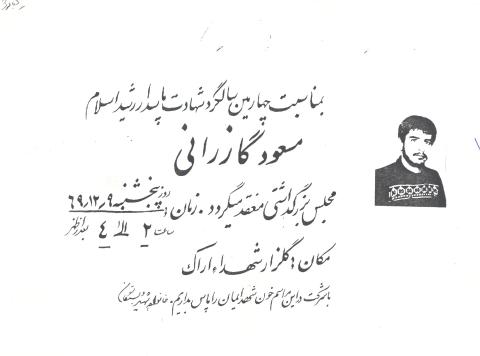 بمناسبت چهارمین سالگرد شهادت پاسدار رشید اسلام
مسعود گازرانی
مجلس بزرگداشتی منعقد میگردد . زمان : روز پنجشنبه ۶۹٫۱۲٫۹
ساعت ۲ الی ٤ بعدازظهر
مکان : گلزار شهداء اراک
با شرکت در این مراسم خون شهدایمان را پاس بداریم . خانواده شهید و بستگان